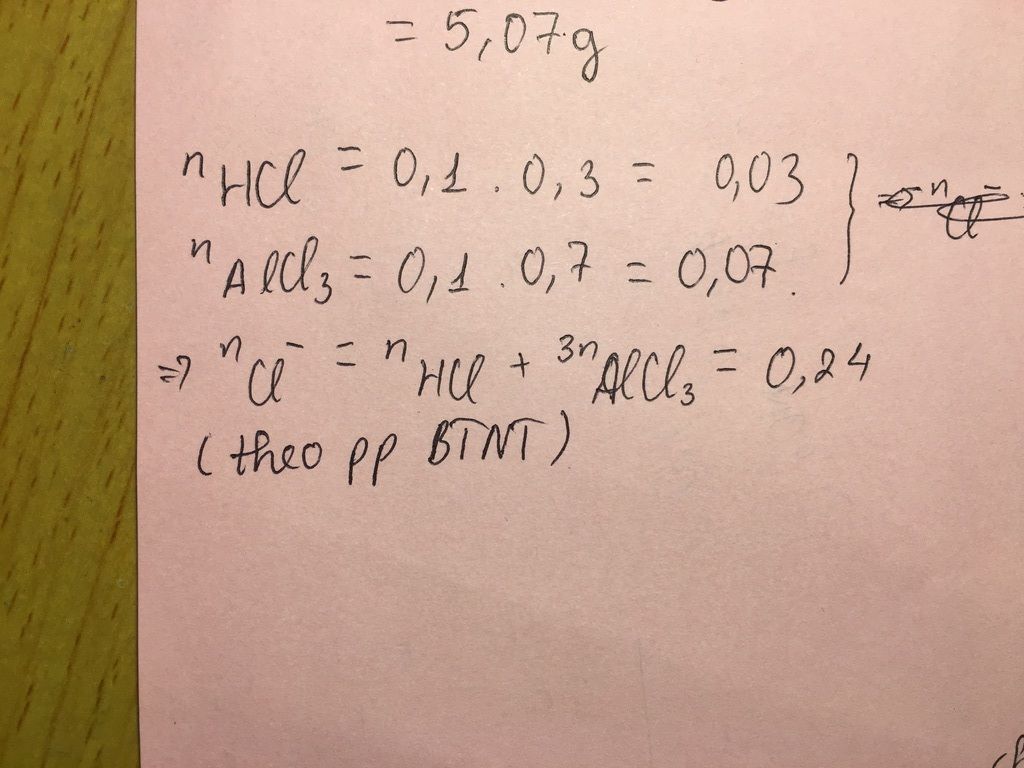 = 5,07g
nHCl = 0,1 . 0,3 = 0,03 }
nAlCl₃ = 0,1 . 0,7 = 0,07.
⇒ nCl⁻ = nHCl + 3nAlCl₃ = 0,24
(theo pp BTNT)